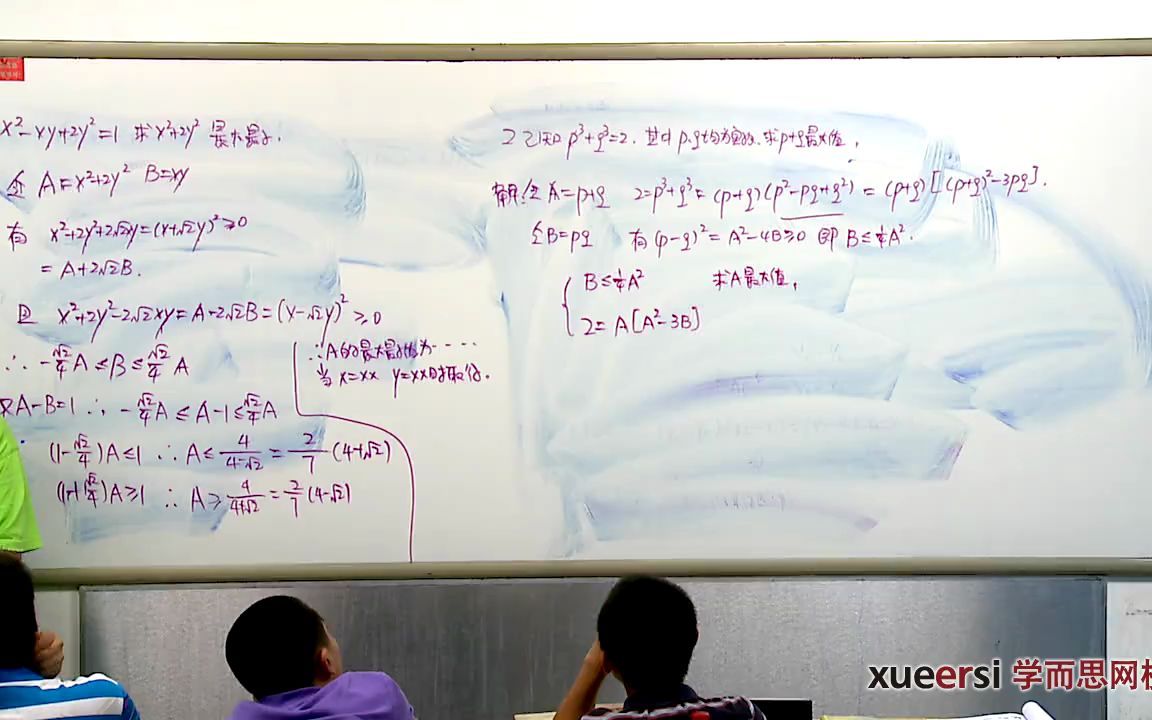 x²-xy+2y²=1 求x²+2y² 最大最小.
令 A=x²+2y² B=xy
有 x²+2y²+2√2xy=(x+√2y)²≥0
=A+2√2B.
且 x²+2y²-2√2xy=A-2√2B=(x-√2y)²≥0
∴ -√2/4 A ≤B≤ √2/4 A
又A-B=1 ∴ -√2/4 A ≤ A-1 ≤ √2/4 A
(1-√2/4)A≤1 ∴ A≤ 4/(4-√2) = 2/7 (4+√2)
(1+√2/4)A≥1 ∴ A≥ 4/(4+√2) = 2/7 (4-√2)
∴A的最大最小值为····
当 x=xx y=xx时取得.
2 已知 p³+q³=2. 其中 p、q均为实数、求p+q最大值.
解:令 A=p+q 2=p³+q³=(p+q)(p²-pq+q²)=(p+q)[(p+q)²-3pq].
令B=pq 有(p-q)²=A²-4B≥0 即 B≤¼A².
B≤¼A² 求A最大值.
2=A[A²-3B]
xueersi 学而思网校